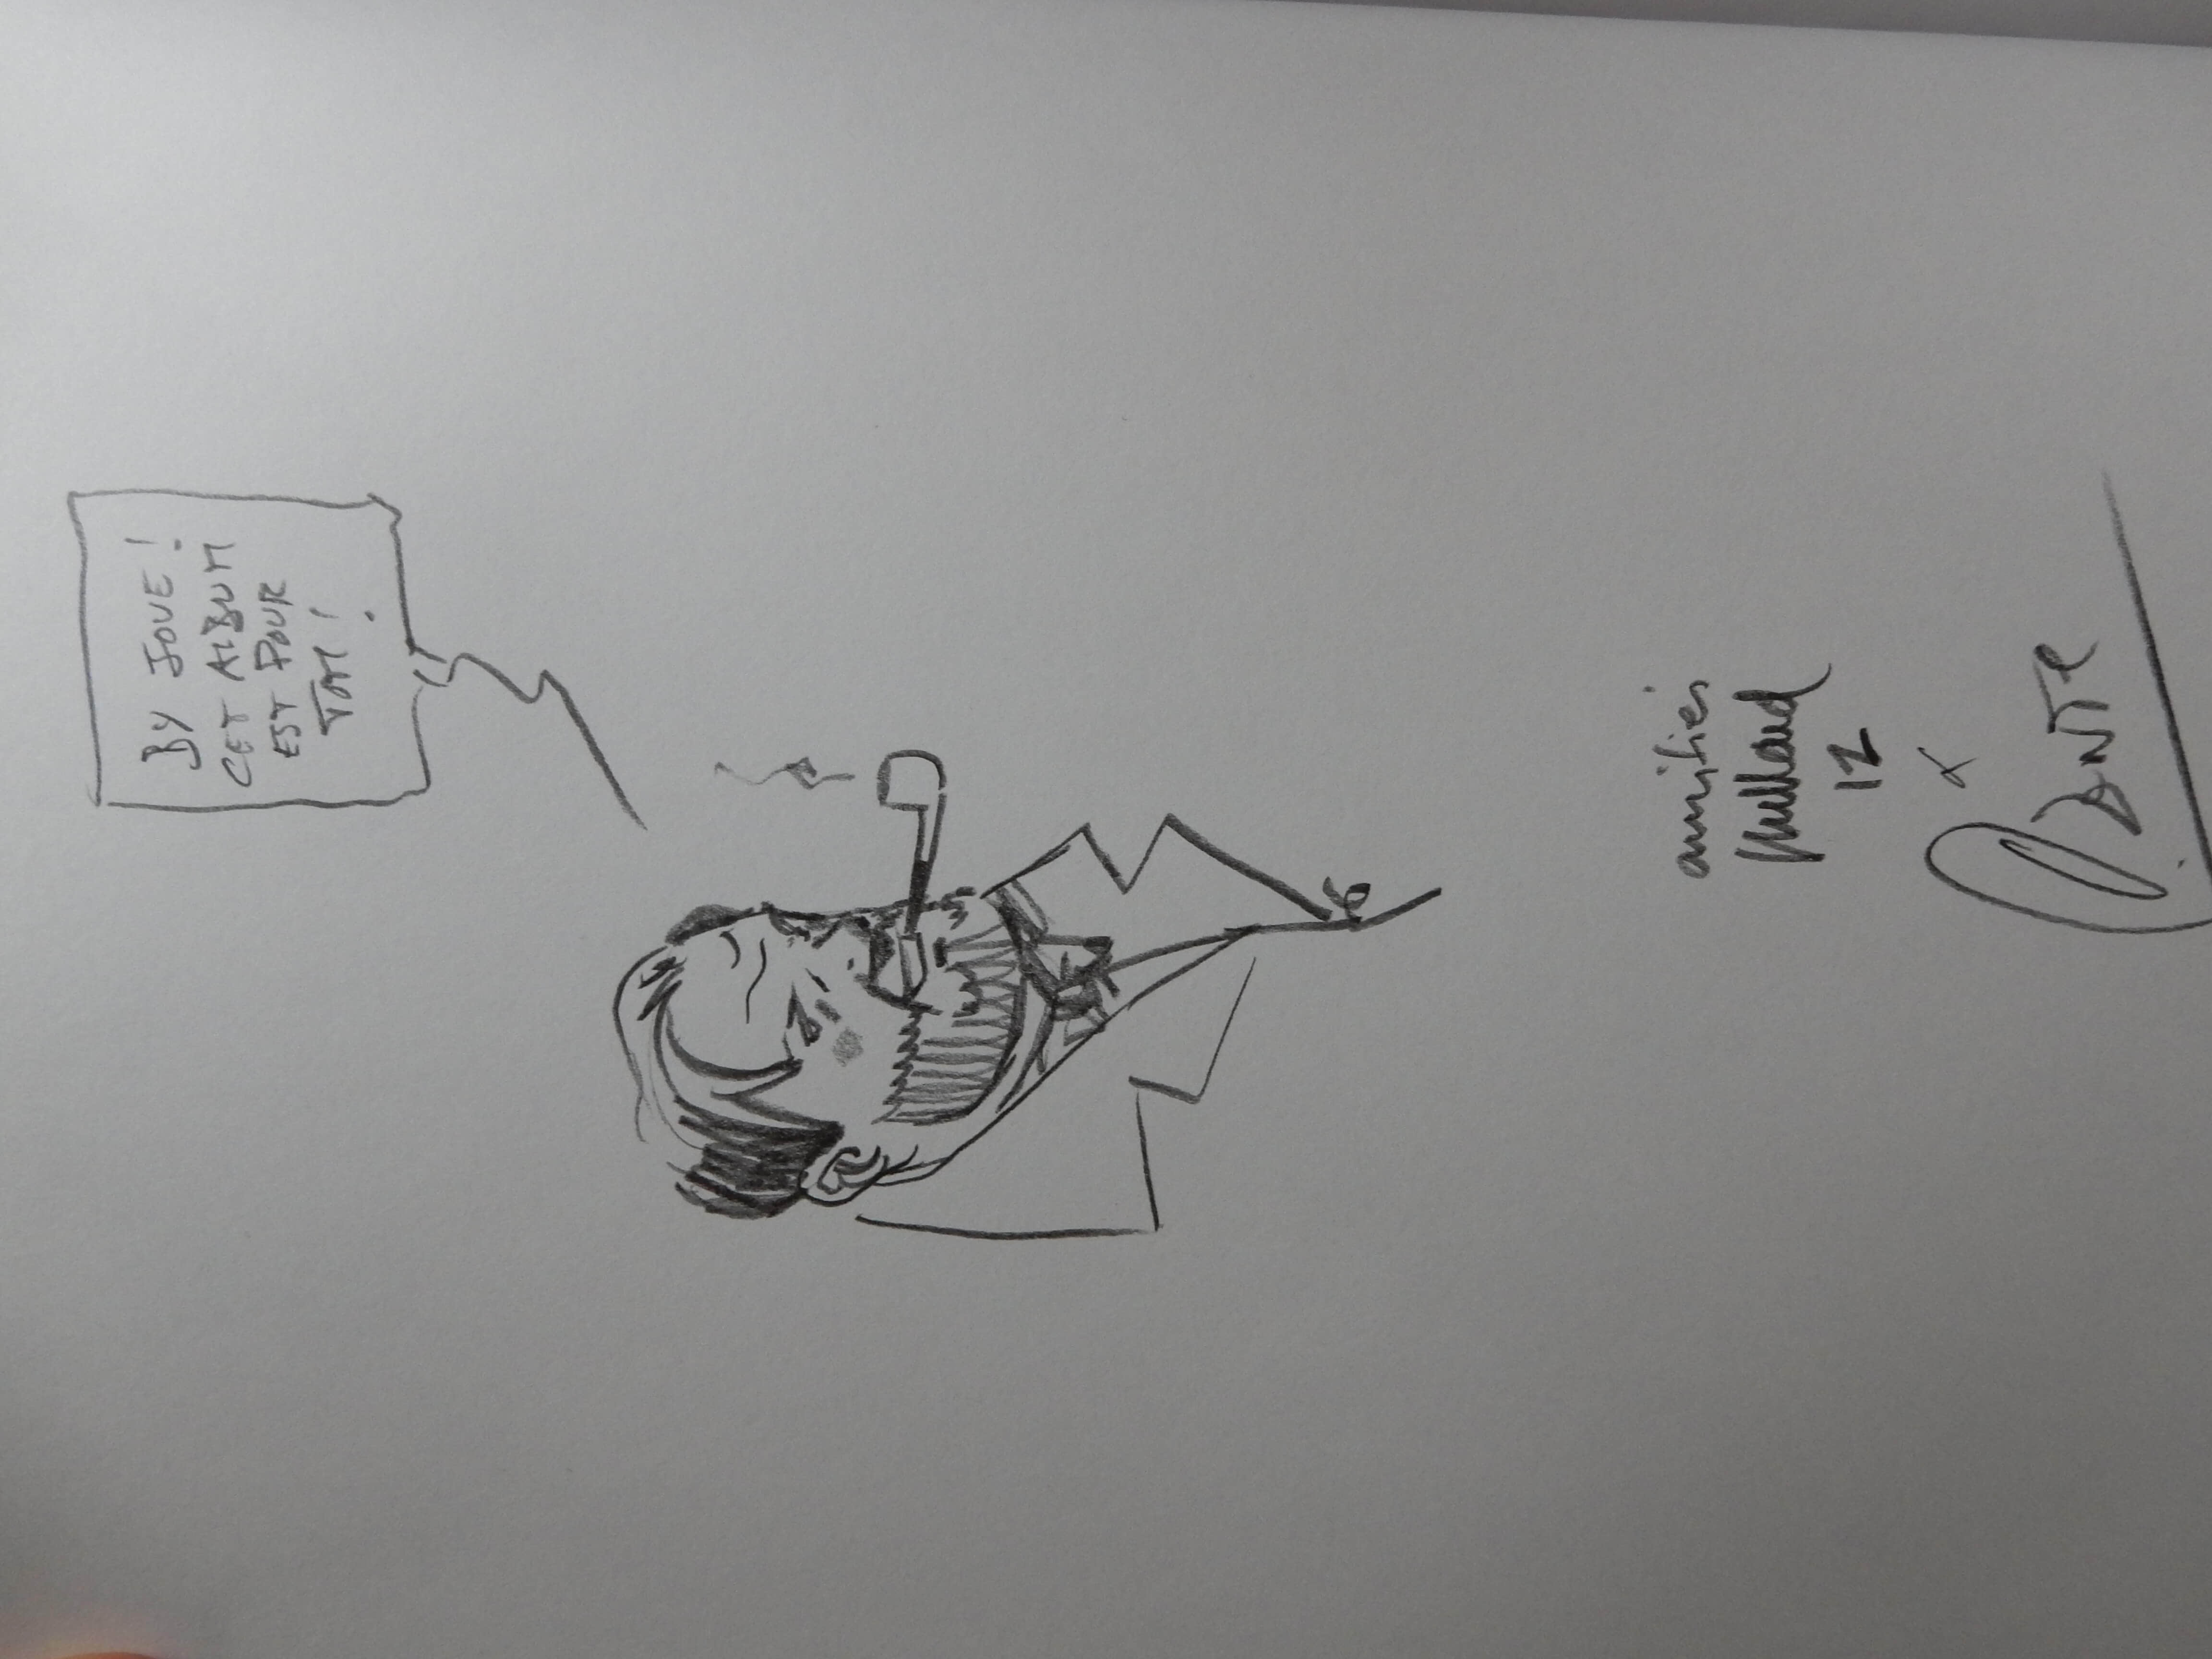 BY JOVE!
CET ALBUM
EST POUR
TOM!
amitiés
Juillard
12